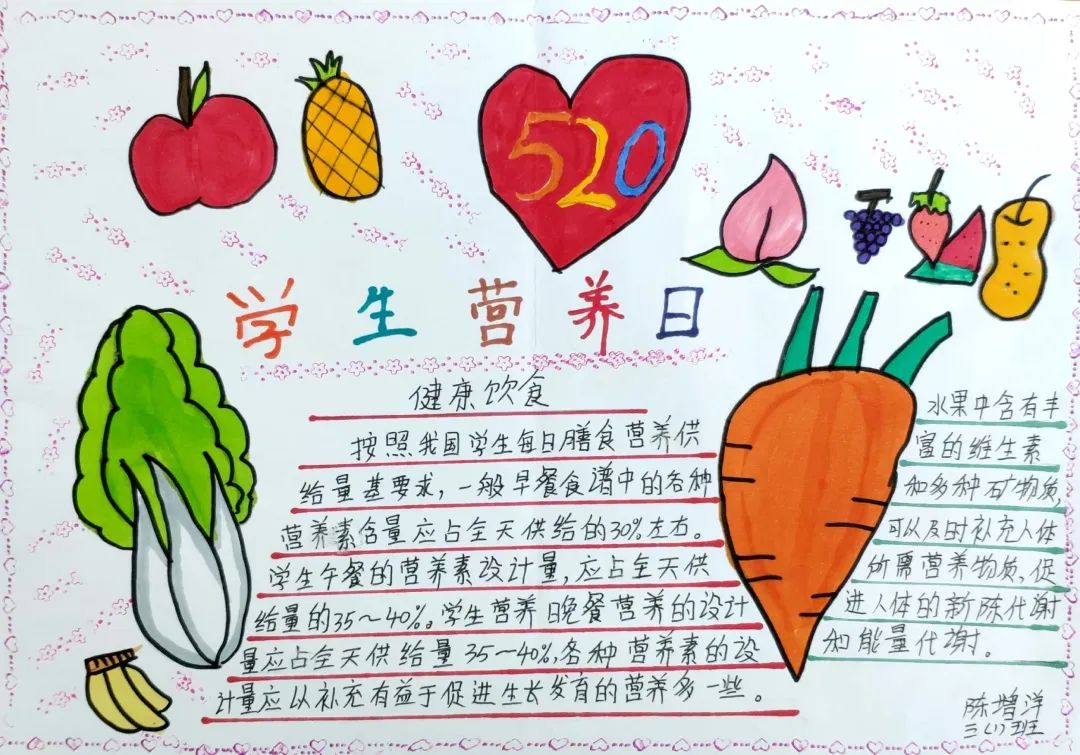 520
学生营养日
健康饮食
按照我国学生每日膳食营养供
给量基要求，一般早餐食谱中的各种
营养素含量应占全天供给的30%左右。
学生午餐的营养素设计量，应占全天供
给量的35～40%。学生营养日晚餐营养的设计
量应占全天供给量35～40%，各种营养素的设
计量应以补充有益于促进生长发育的营养多一些。
水果中含有丰
富的维生素
和多种矿物质，
可以及时补充人体
所需营养物质，促
进人体的新陈代谢
和能量代谢。
陈增洋
三(1)班